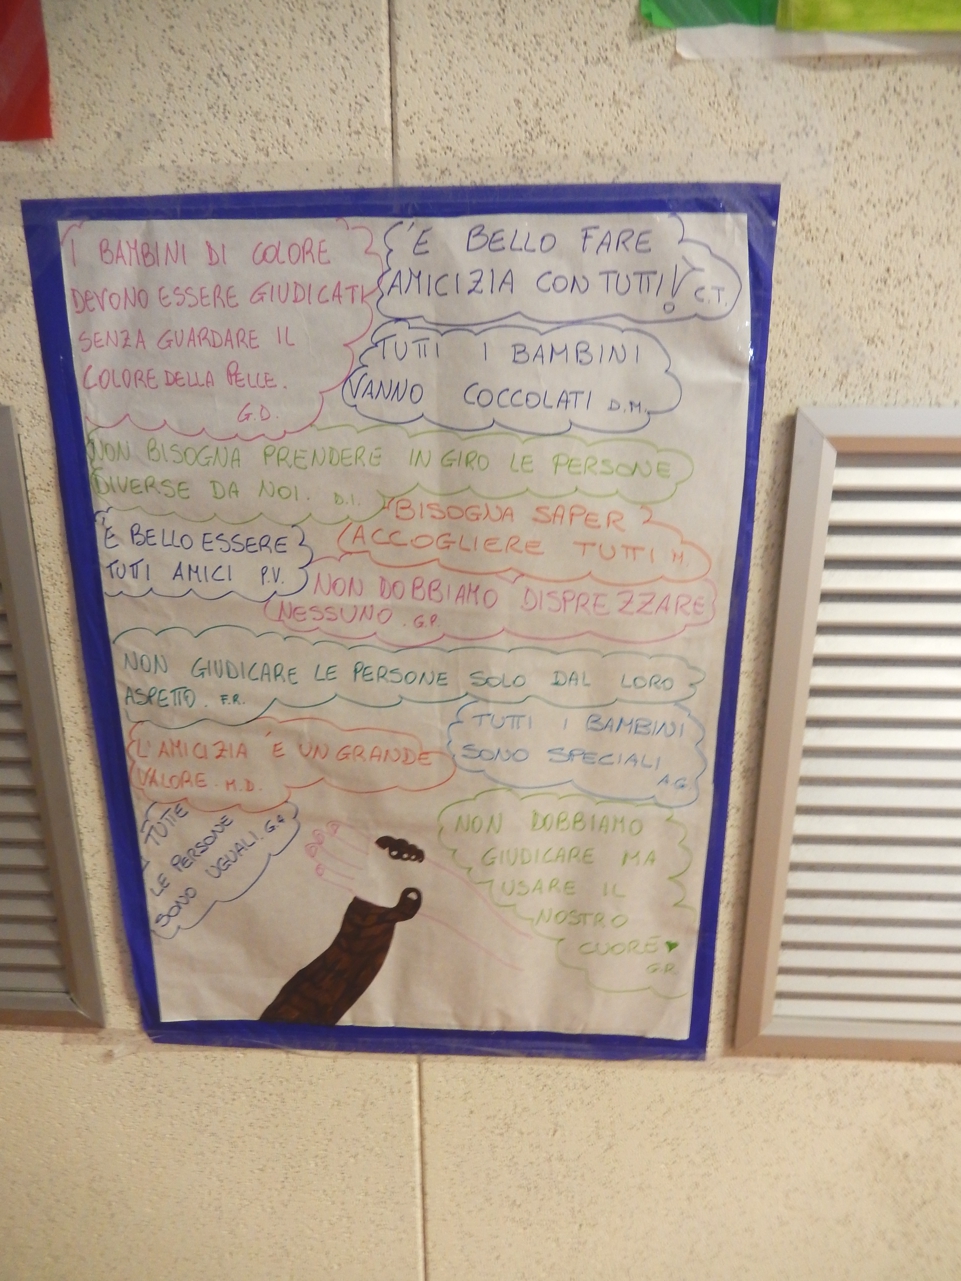 I BAMBINI DI COLORE
DEVONO ESSERE GIUDICATI
SENZA GUARDARE IL
COLORE DELLA PELLE.
G.D.
'E BELLO FARE
AMICIZIA CON TUTTI! C.T.
TUTTI I BAMBINI
VANNO COCCOLATI D.M.
NON BISOGNA PRENDERE IN GIRO LE PERSONE
DIVERSE DA NOI. D.I.
BISOGNA SAPER
ACCOGLIERE TUTTI M.
'E BELLO ESSERE
TUTTI AMICI P.V.
NON DOBBIAMO DISPREZZARE
NESSUNO. G.P.
NON GIUDICARE LE PERSONE SOLO DAL LORO
ASPETTO. F.R.
TUTTI I BAMBINI
SONO SPECIALI
A.G.
L'AMICIZIA 'E UN GRANDE
VALORE. M.D.
TUTTE
LE PERSONE
SONO UGUALI.
NON DOBBIAMO
GIUDICARE MA
USARE IL
NOSTRO
CUORE
G.P.